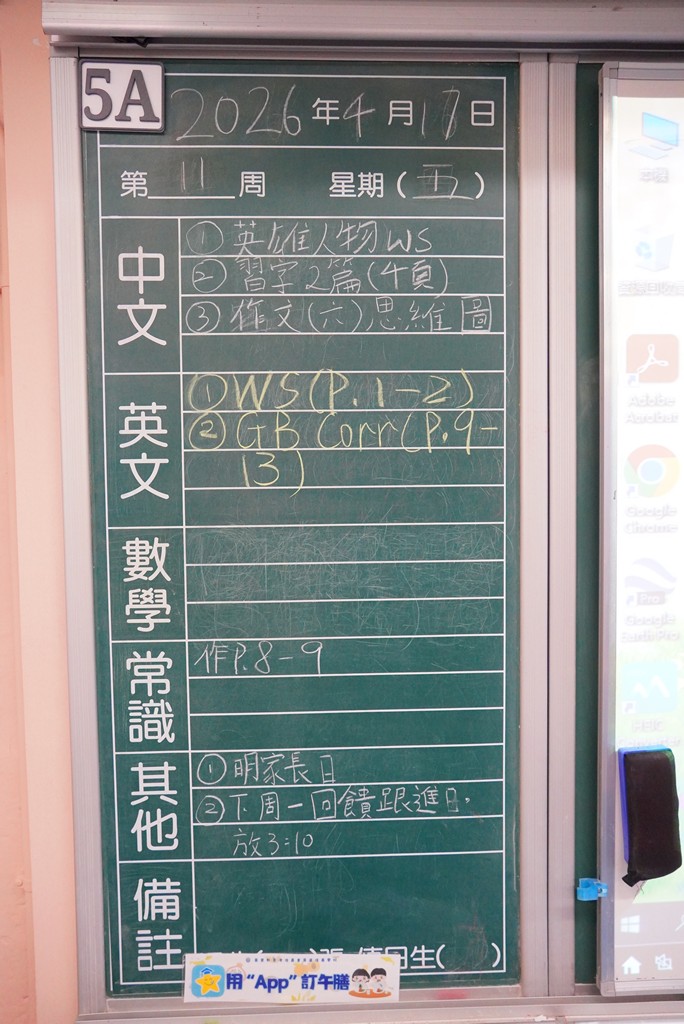 5A
2026年4月17日
第11周 星期(五)
中文
①英雄人物WS
②習字2篇(4頁)
③作文(六)思維圖
英文
①WS(P.1-2)
②GB Corr(P.9-
13)
數學
常識
作P.8-9
其他
①明家長日
②下周一回饋跟進日,
放3:10
備註
生(    )
用“App”訂午膳
本機
Adobe
Acrobat
Google
Chrome
Google
Earth Pro